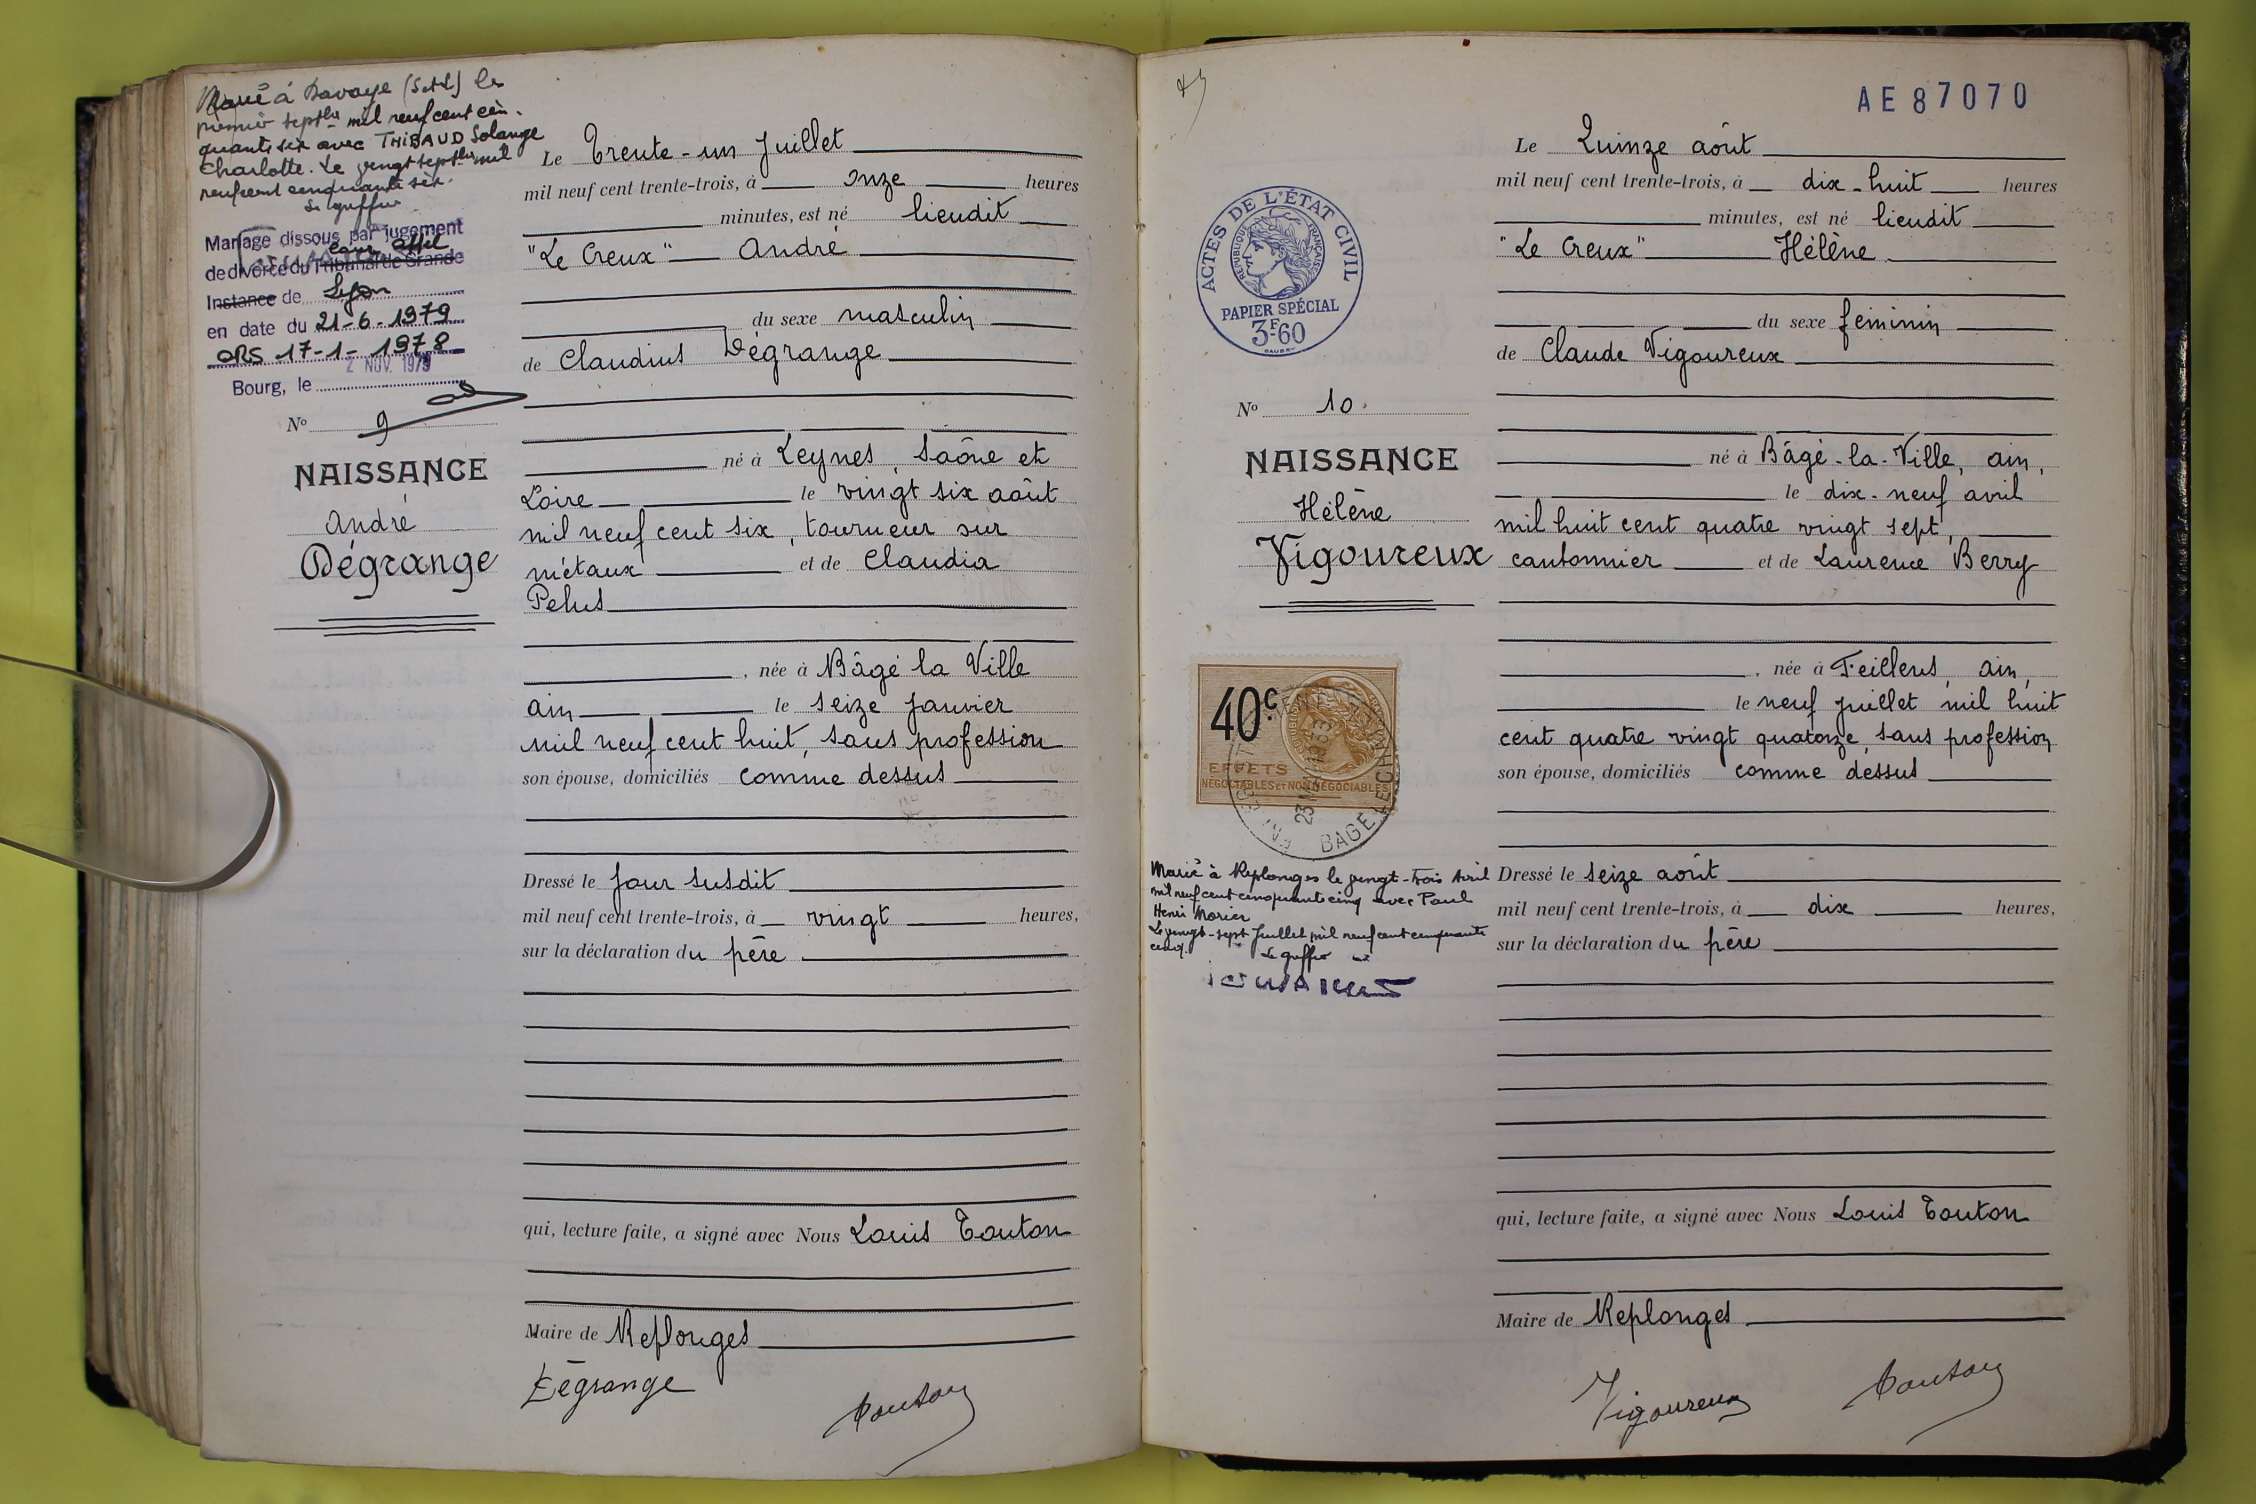 Marié à Davaye (S et L) le
premier septbre mil neuf cent cin-
quante six avec THIBAUD Solange
Charlotte. Le vingt septbre mil
neuf cent cinquante six.
Le greffier
Mariage dissous par jugement
cour appel
de divorce du Tribunal de Grande
Instance de Lyon
en date du 21-6-1979
ORS 17-1-1978
2 NOV. 1979
Bourg, le
No 9
NAISSANCE
André
Dégrange
Le Trente-un Juillet
mil neuf cent trente-trois, à onze heures
minutes, est né lieudit
"Le Creux" André
du sexe masculin
de Claudius Dégrange
né à Leynes, Saône et
Loire le vingt six août
mil neuf cent six, tourneur sur
métaux et de Claudia
Pelus
, née à Bâgé la Ville
ain le seize janvier
mil neuf cent huit, sans profession
son épouse, domiciliés comme dessus
Dressé le jour susdit
mil neuf cent trente-trois, à vingt heures,
sur la déclaration du père
qui, lecture faite, a signé avec Nous Louis Touton
Maire de Replonges
Dégrange
Touton
AE 87070
ACTES DE L'ÉTAT CIVIL
RÉPUBLIQUE FRANÇAISE
PAPIER SPÉCIAL
3F60
No 10.
NAISSANCE
Hélène
Vigoureux
40c
EFFETS
NÉGOCIABLES ET NON NÉGOCIABLES
BAGÉ LE CHATEL
Marié à Replonges le vingt-trois Avril
mil neuf cent cinquante cinq avec Paul
Henri Morier
Le vingt-sept Juillet mil neuf cent cinquante
cinq. Le greffier
Le Quinze août
mil neuf cent trente-trois, à dix-huit heures
minutes, est né lieudit
"Le Creux" Hélène
du sexe féminin
de Claude Vigoureux
né à Bâgé-la-Ville, ain,
le dix-neuf avril
mil huit cent quatre vingt sept,
cantonnier et de Laurence Berry
, née à Feillens, ain,
le neuf juillet mil huit
cent quatre vingt quatorze, sans profession
son épouse, domiciliés comme dessus
Dressé le seize août
mil neuf cent trente-trois, à dix heures,
sur la déclaration du père
qui, lecture faite, a signé avec Nous Louis Touton
Maire de Replonges
Vigoureux
Touton